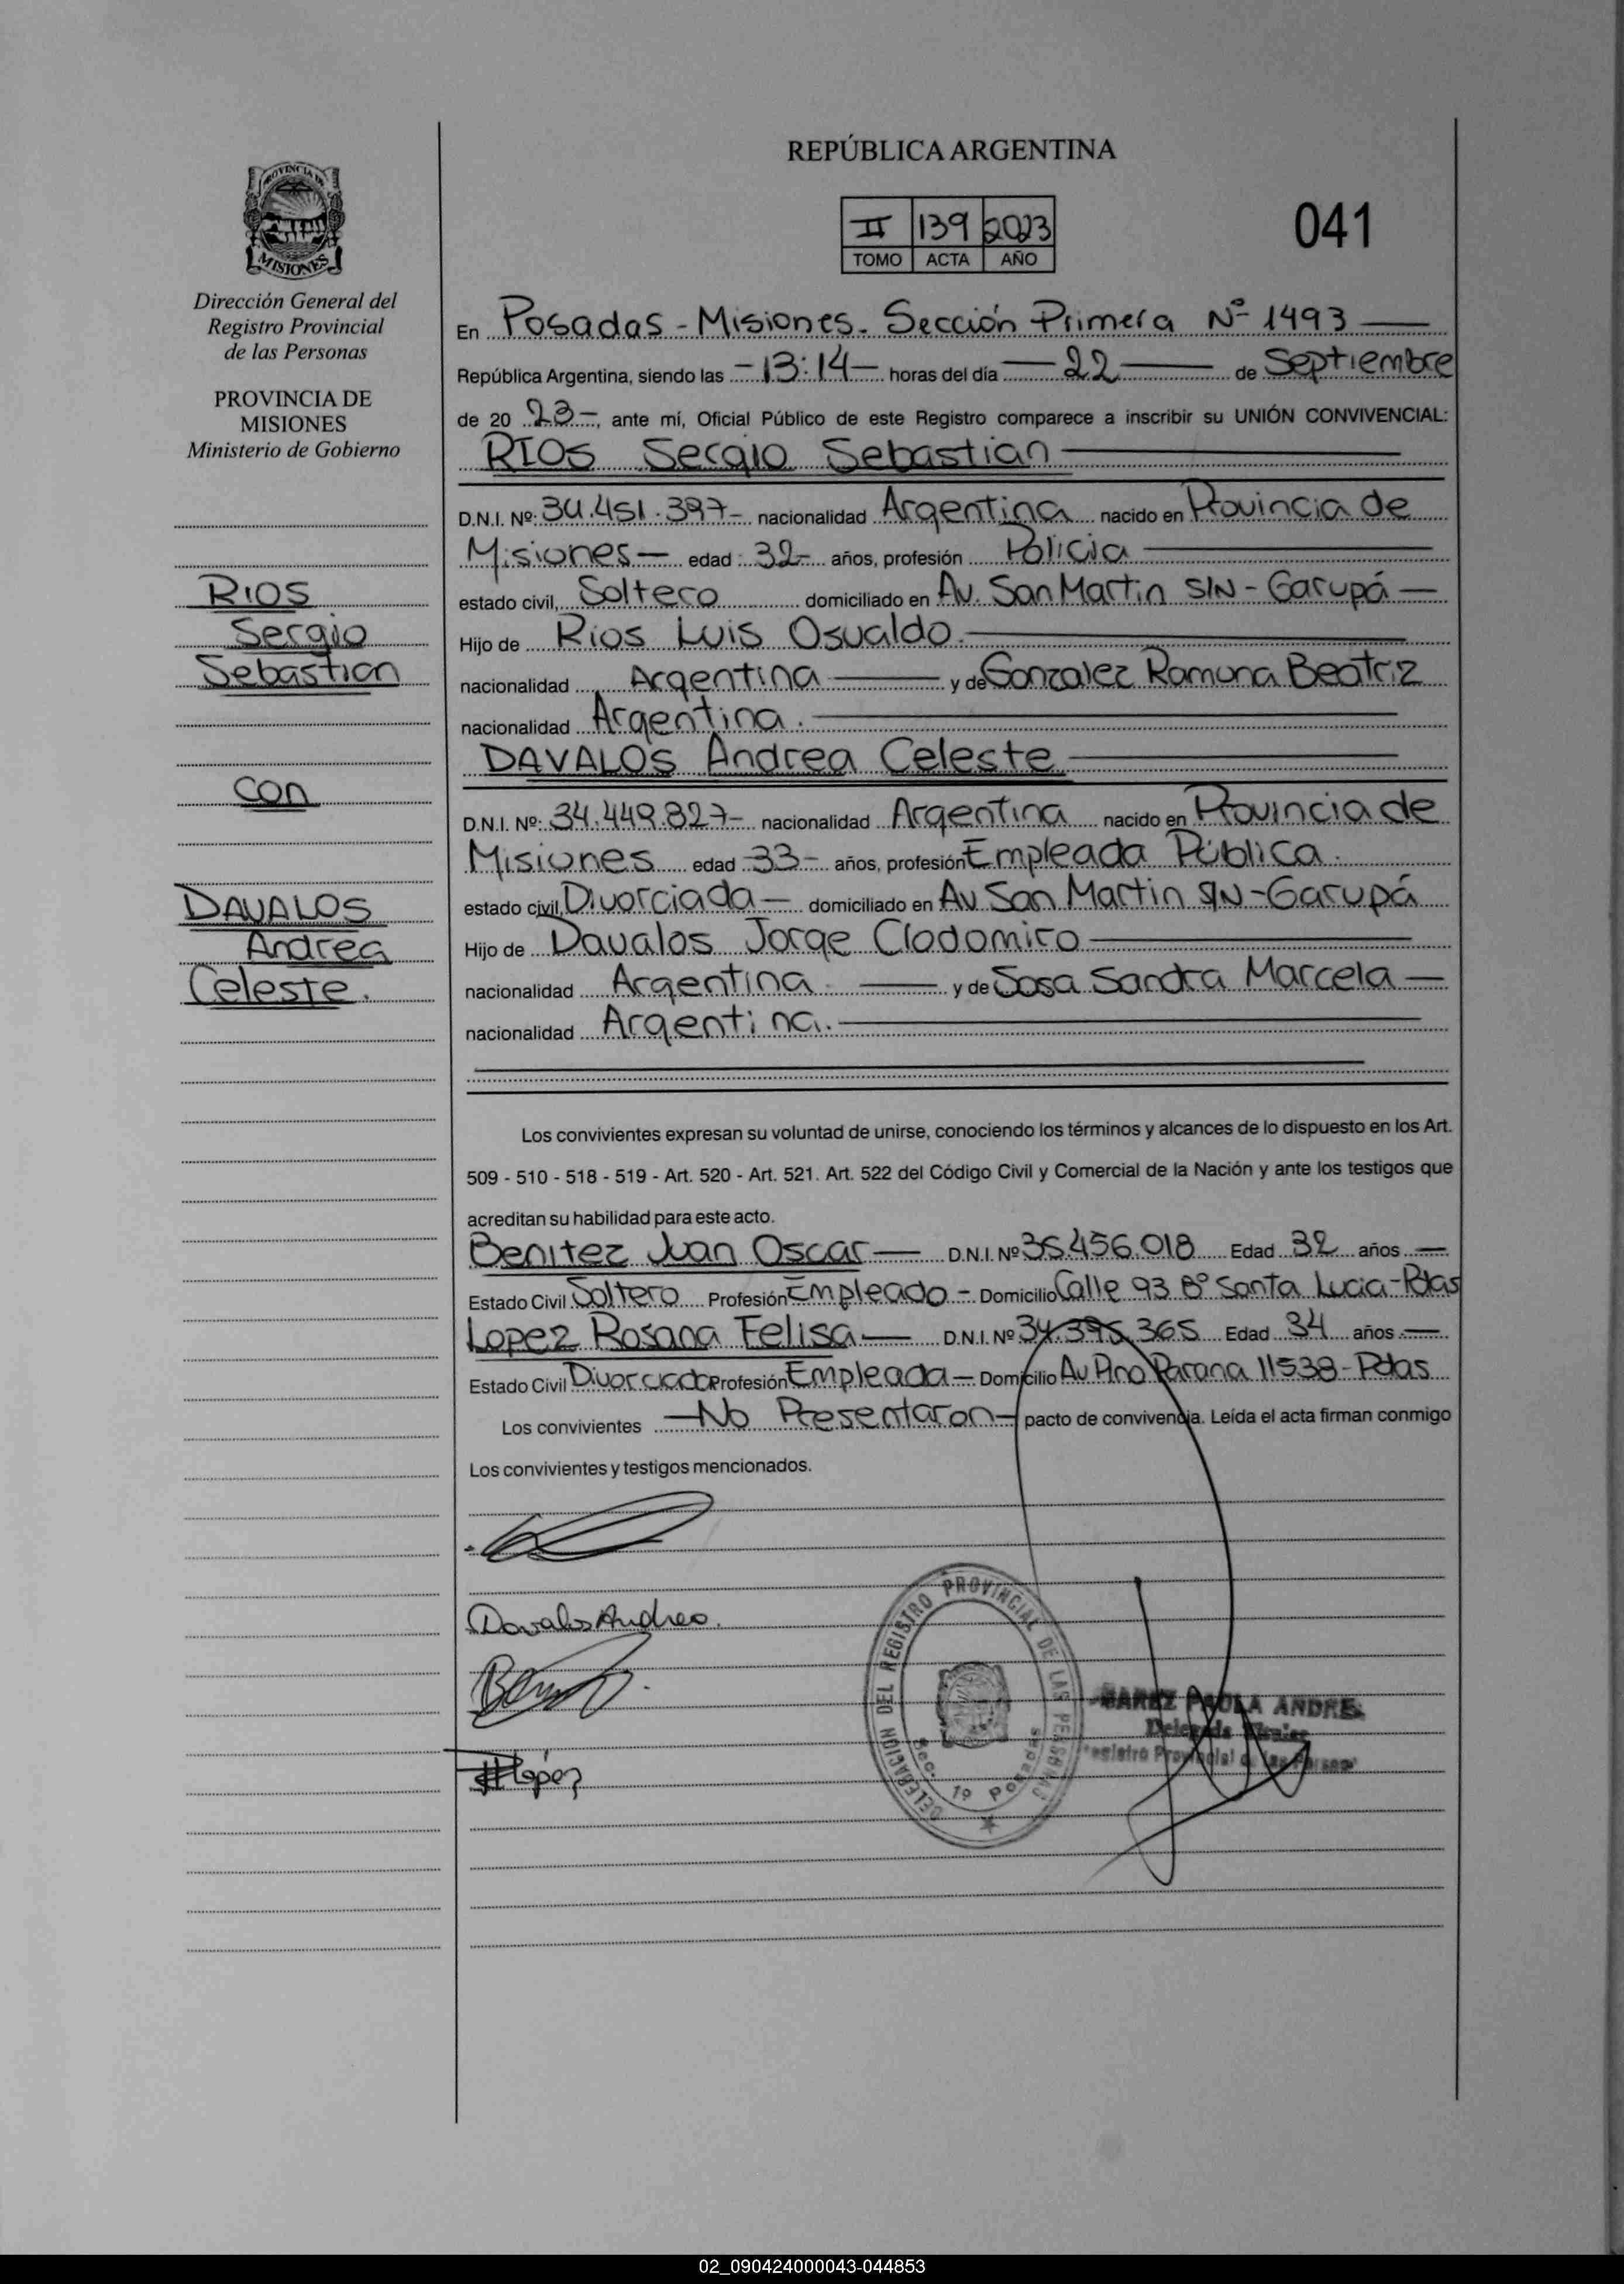 REPÚBLICA ARGENTINA
II 139 2023
TOMO ACTA AÑO
041
PROVINCIA DE
MISIONES
Dirección General del
Registro Provincial
de las Personas
PROVINCIA DE
MISIONES
Ministerio de Gobierno
RIOS
Sergio
Sebastian
con
DAVALOS
Andrea
Celeste.
En Posadas - Misiones. Sección Primera Nº 1493
República Argentina, siendo las -13:14- horas del día 22 de Septiembre
de 20 23-, ante mí, Oficial Público de este Registro comparece a inscribir su UNIÓN CONVIVENCIAL:
RIOS Sergio Sebastian
D.N.I. Nº: 34.451.397- nacionalidad Argentina nacido en Provincia de
Misiones- edad 32- años, profesión Policia
estado civil, Soltero domiciliado en Av. San Martin S/N - Garupá-
Hijo de Rios Luis Osvaldo.
nacionalidad Argentina y de Gonzalez Ramona Beatriz
nacionalidad Argentina.
DAVALOS Andrea Celeste
D.N.I. Nº: 34.449.827- nacionalidad Argentina nacido en Provincia de
Misiones edad 33- años, profesión Empleada Pública.
estado civil, Divorciada- domiciliado en Av San Martin S/N-Garupá
Hijo de Davalos Jorge Clodomiro
nacionalidad Argentina y de Sosa Sandra Marcela-
nacionalidad Argentina.
Los convivientes expresan su voluntad de unirse, conociendo los términos y alcances de lo dispuesto en los Art.
509 - 510 - 518 - 519 - Art. 520 - Art. 521. Art. 522 del Código Civil y Comercial de la Nación y ante los testigos que
acreditan su habilidad para este acto.
Benitez Juan Oscar- D.N.I. Nº 35.456.018 Edad 32 años
Estado Civil Soltero Profesión Empleado - Domicilio Calle 93 Bº Santa Lucia-Pdas
Lopez Rosana Felisa- D.N.I. Nº 34.395.365 Edad 34 años
Estado Civil Divorciada Profesión Empleada- Domicilio Av Pno Parana 11538-Pdas
Los convivientes -No Presentaron- pacto de convivencia. Leída el acta firman conmigo
Los convivientes y testigos mencionados.
Davalos Andrea.
López
DELEGACION DEL REGISTRO PROVINCIAL DE LAS PERSONAS
Sec. 1º Posadas
PAULA ANDREA
Delegada
Registro Provincial de las Personas
02_090424000043-044853